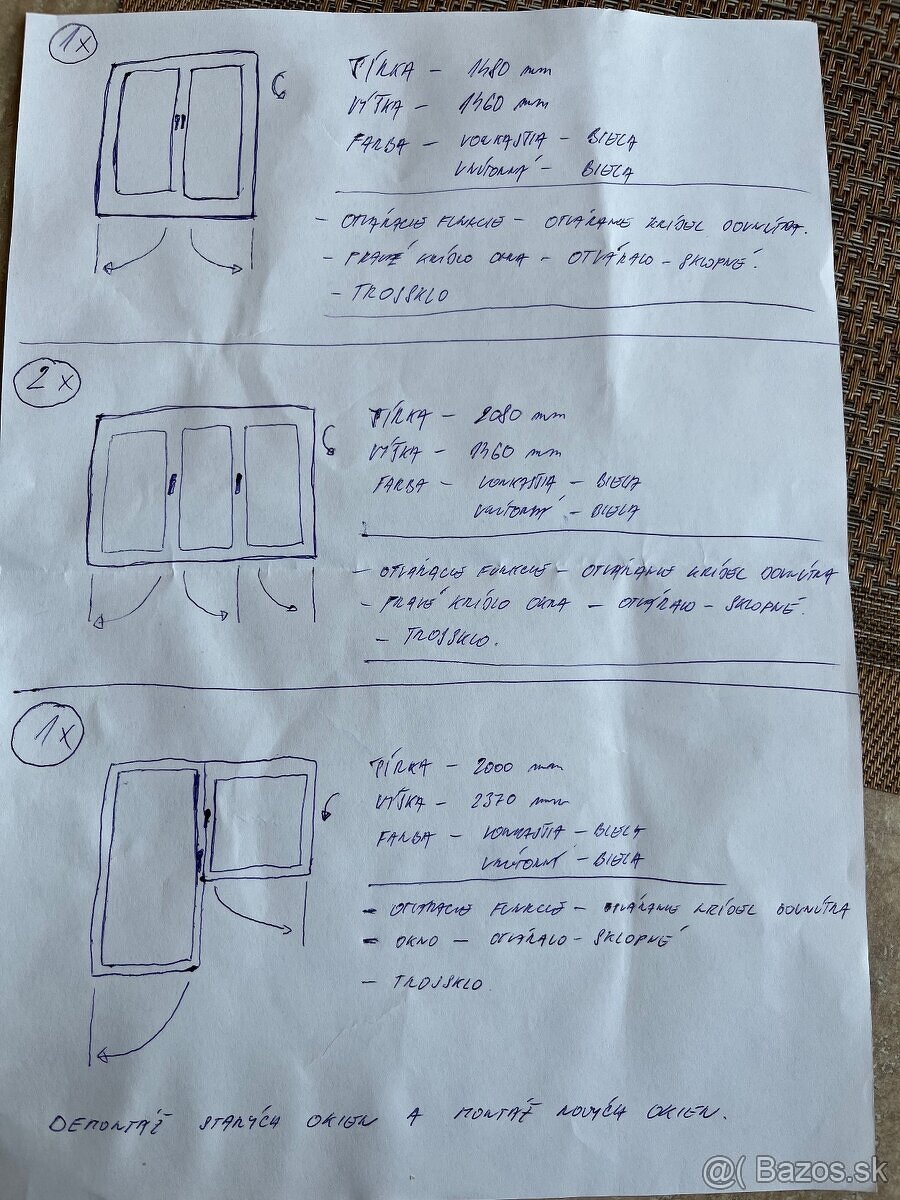 1x
ŠÍRKA – 1480 mm
VÝŠKA – 1460 mm
FARBA – VONKAJŠIA – BIELA
VNÚTORNÁ – BIELA
– OTVÁRACIE FUNKCIE – OTVÁRANIE KRÍDEL DOVNÚTRA.
– PRAVÉ KRÍDLO OKNA – OTVÁRAVO – SKLOPNÉ.
– TROJSKLO
2x
ŠÍRKA – 2080 mm
VÝŠKA – 1460 mm
FARBA – VONKAJŠIA – BIELA
VNÚTORNÁ – BIELA
– OTVÁRACIE FUNKCIE – OTVÁRANIE KRÍDEL DOVNÚTRA
– PRAVÉ KRÍDLO OKNA – OTVÁRAVO – SKLOPNÉ.
– TROJSKLO.
1x
ŠÍRKA – 2000 mm
VÝŠKA – 2370 mm
FARBA – VONKAJŠIA – BIELA
VNÚTORNÁ – BIELA
– OTVÁRACIE FUNKCIE – OTVÁRANIE KRÍDEL DOVNÚTRA
– OKNO – OTVÁRAVO – SKLOPNÉ
– TROJSKLO
DEMONTÁŽ STARÝCH OKIEN A MONTÁŽ NOVÝCH OKIEN.
@( Bazos.sk